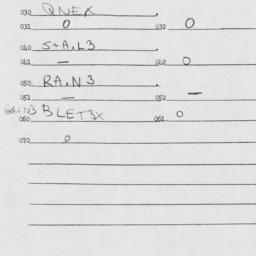 030 QNEX .
031 0 032 0
040 S+A.L3 .
041 — 042 0
050 RA.N3 .
051 — 052 —
060 BLET3X 061 0
070 0